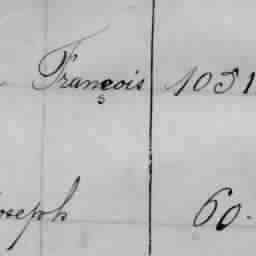 François 1051
oseph 60.